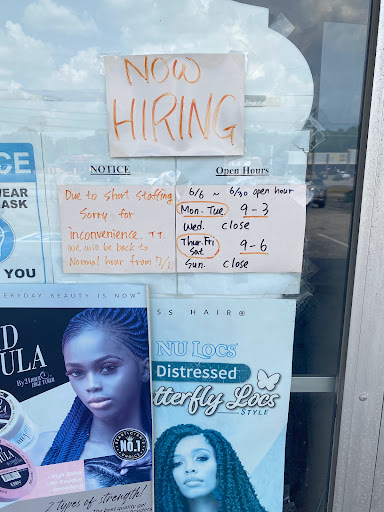 NOW
HIRING
NOTICE
Due to short staffing
Sorry for
inconvenience. ㅜㅜ
we will be back to
Normal hour from 7/1
Open Hours
6/6 ~ 6/30 open hour
Mon. Tue 9-3
Wed. close
Thur. Fri
Sat 9-6
Sun. close
CE
WEAR
MASK
YOU
EVERYDAY BEAUTY IS NOW™
D
ULA
CERTIFIED
No.1
2 types of strength!
SS HAIR®
NU LOCS
Distressed
tterfly Locs
STYLE